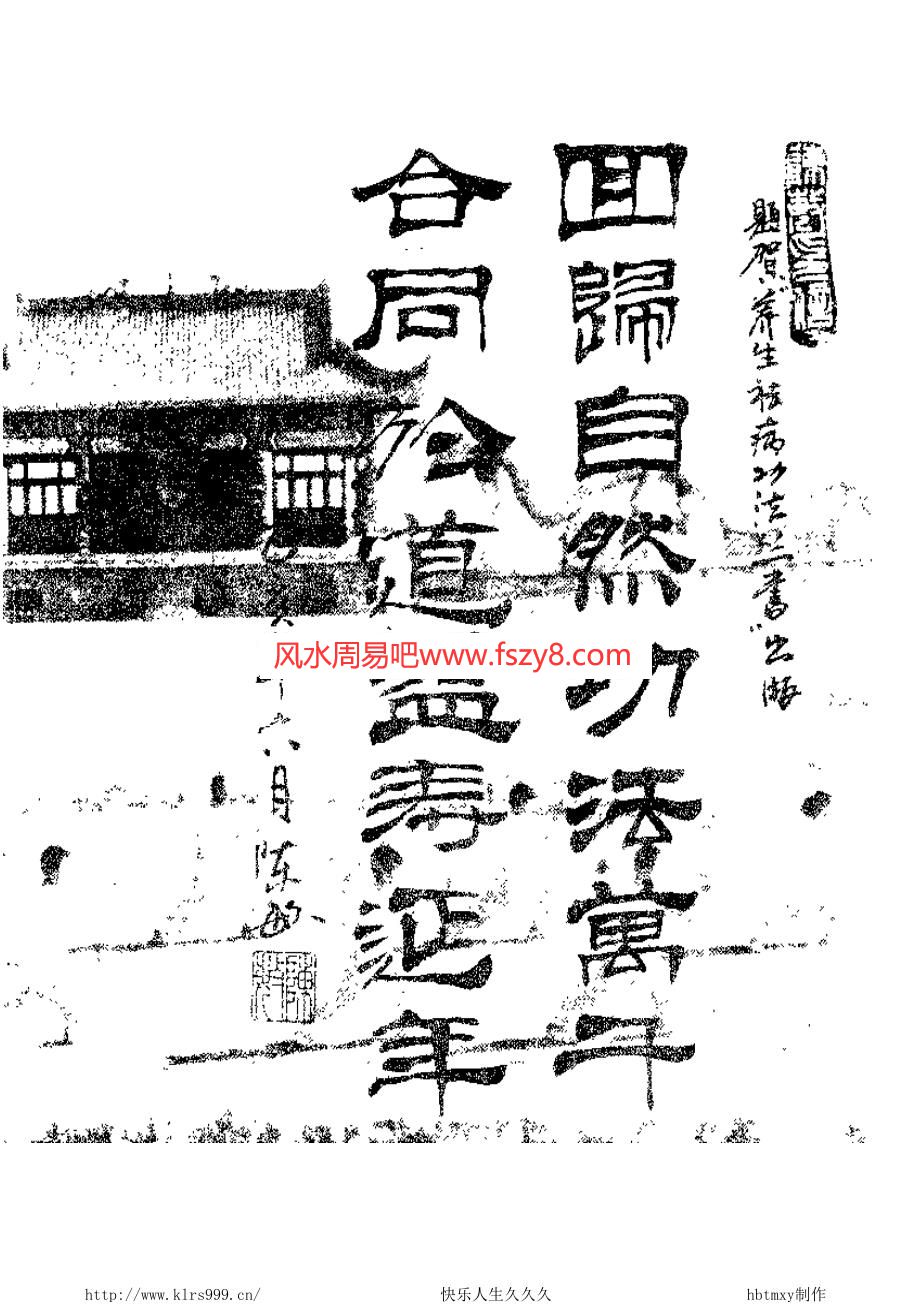 题贺"养生祛病功法丛书"出版
回歸自然功法萬千
合同於道益寿延年
年六月陈
风水周易吧www.fszy8.com
http://www.klrs999.cn/
快乐人生久久久
hbtmxy制作